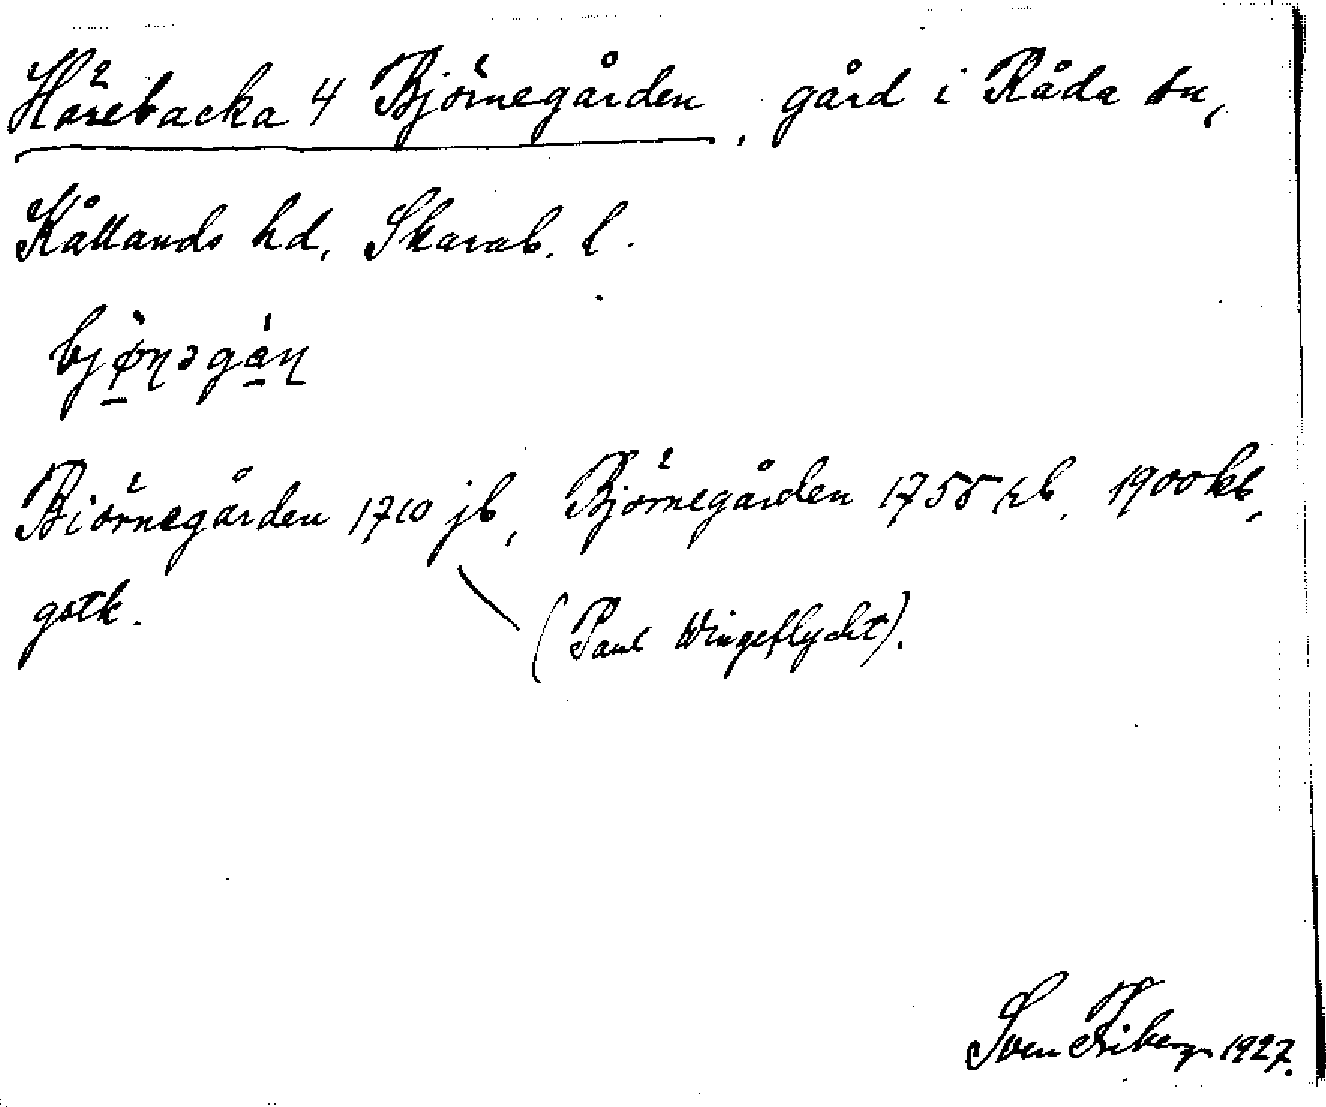 Härebacka 4 Björnegården, gård i Råda sn,
Kållands hd, Skarab. l.
bjø̱̀ɳəgá̱ɳ
Biörnegården 1710 jb, Björnegården 1758 rb, 1900 kb,
gstk.
(Paul Wingeflycht).
Sven Friberg 1927.